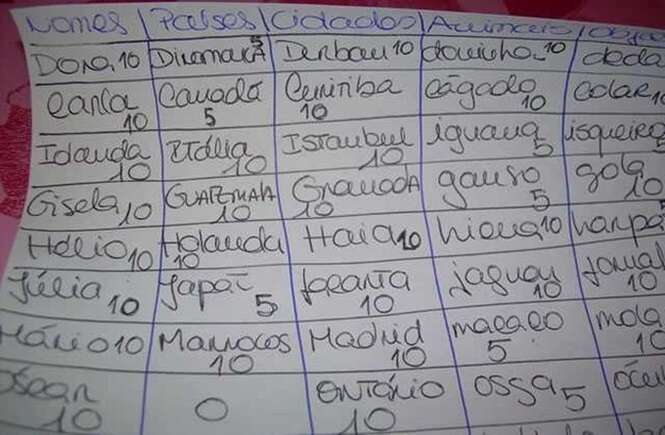 Nomes Países Cidades Animais
Dora 10 Dinamarca 5 Durban 10 doninha 10 deda
Carla 10 Canadá 5 Curitiba 10 cágado 10 colar 1
Iolanda 10 Itália 10 Istanbul 10 iguana 5 isqueiro 5
Gisela 10 GUATEMALA 10 Granada 10 ganso 5 gola 10
Hélio 10 Holanda 10 Haia 10 hiena 10 harpa
Júlia 10 Japão 5 Jakarta 10 jaguar 10 jornal 10
Mário 10 Marrocos 10 Madrid 10 macaco 5 mola 10
Óscar 10 0 Ontário 10 ossa 5 ócul